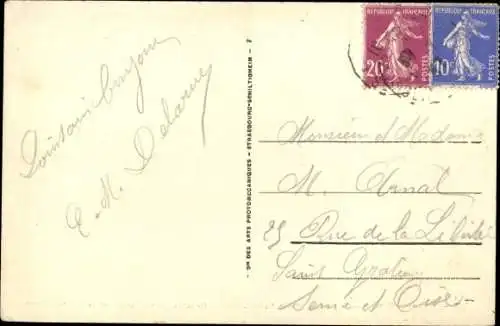 Lointain bonjour
E. M. Delarue
Sté DES ARTS PHOTOMECANIQUES - STRASBOURG-SCHILTIGHEIM - 7
REPUBLIQUE FRANÇAISE
20c POSTES
REPUBLIQUE FRANÇAISE
10c POSTES
Monsieur et Madame
M. Arnal
25 Rue de la Liberté
Saint Gratien
Seine et Oise